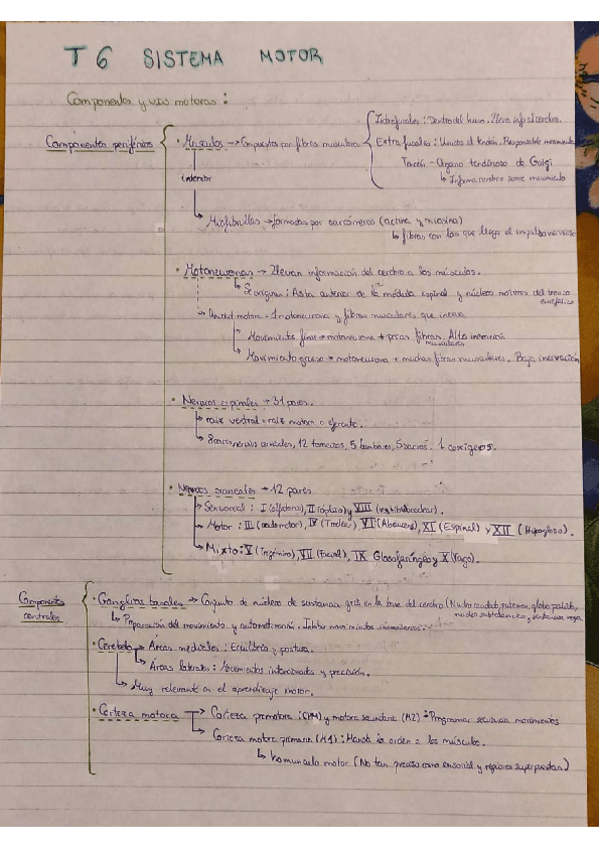 T 6 SISTEMA MOTOR
Componentes y vías motoras :
Intrafusales : Dentro del huso. Lleva info al cerebro.
Componentes periféricos
· Músculos → Compuestos por fibras musculares
Extrafusales : Unidas al tendón. Responsable movimiento
Tendón - Organo tendinoso de Golgi
↳ Informa cerebro sobre movimiento
interior
↳ Miofibrillas → formadas por sarcómeros (actina y miosina)
↳ fibras con las que llega el impulso nervioso
· Motoneuronas → Llevan información del cerebro a los músculos.
↳ Se originan : Asta anterior de la médula espinal y núcleos motores del tronco
encefálico
↳ Unidad motora = 1 motoneurona y fibras musculares que inerva
↳ Movimiento fino → motoneurona + pocas fibras. Alta inervación
musculares
↳ Movimiento grueso → motoneurona + muchas fibras musculares. Baja inervación
· Nervios espinales → 31 pares.
↳ raíz ventral = raíz motora o eferente.
↳ 8 cervicales, 12 torácicos, 5 lumbares, 5 sacros, 1 coxígeos.
· Nervios craneales → 12 pares
↳ Sensorial : I (olfatorio), II (óptico) y VIII (vestibulococlear).
↳ Motor : III (oculomotor), IV (Troclear), VI (Abducens), XI (Espinal) y XII (Hipogloso).
↳ Mixto : V (Trigémino), VII (Facial), IX Glosofaríngeo y X (Vago).
Componentes centrales
· Ganglios basales → Conjunto de núcleos de sustancia gris en la base del cerebro (Núcleo caudado, putamen, globo pálido,
núcleo subtalámico y sustancia negra
↳ Preparación del movimiento y automatización. Inhibir movimientos
· Cerebelo → Áreas mediales : Equilibrio y postura.
↳ Áreas laterales : Movimientos intencionados y precisión.
↳ Muy relevante en el aprendizaje motor.
· Corteza motora → Corteza premotora : (CPM) y motora secundaria (M2) : Programar secuencia movimientos
↳ Corteza motora primaria (M1) : Manda la orden a los músculos.
↳ homúnculo motor (No tan preciso como sensorial y regiones superpuestas)